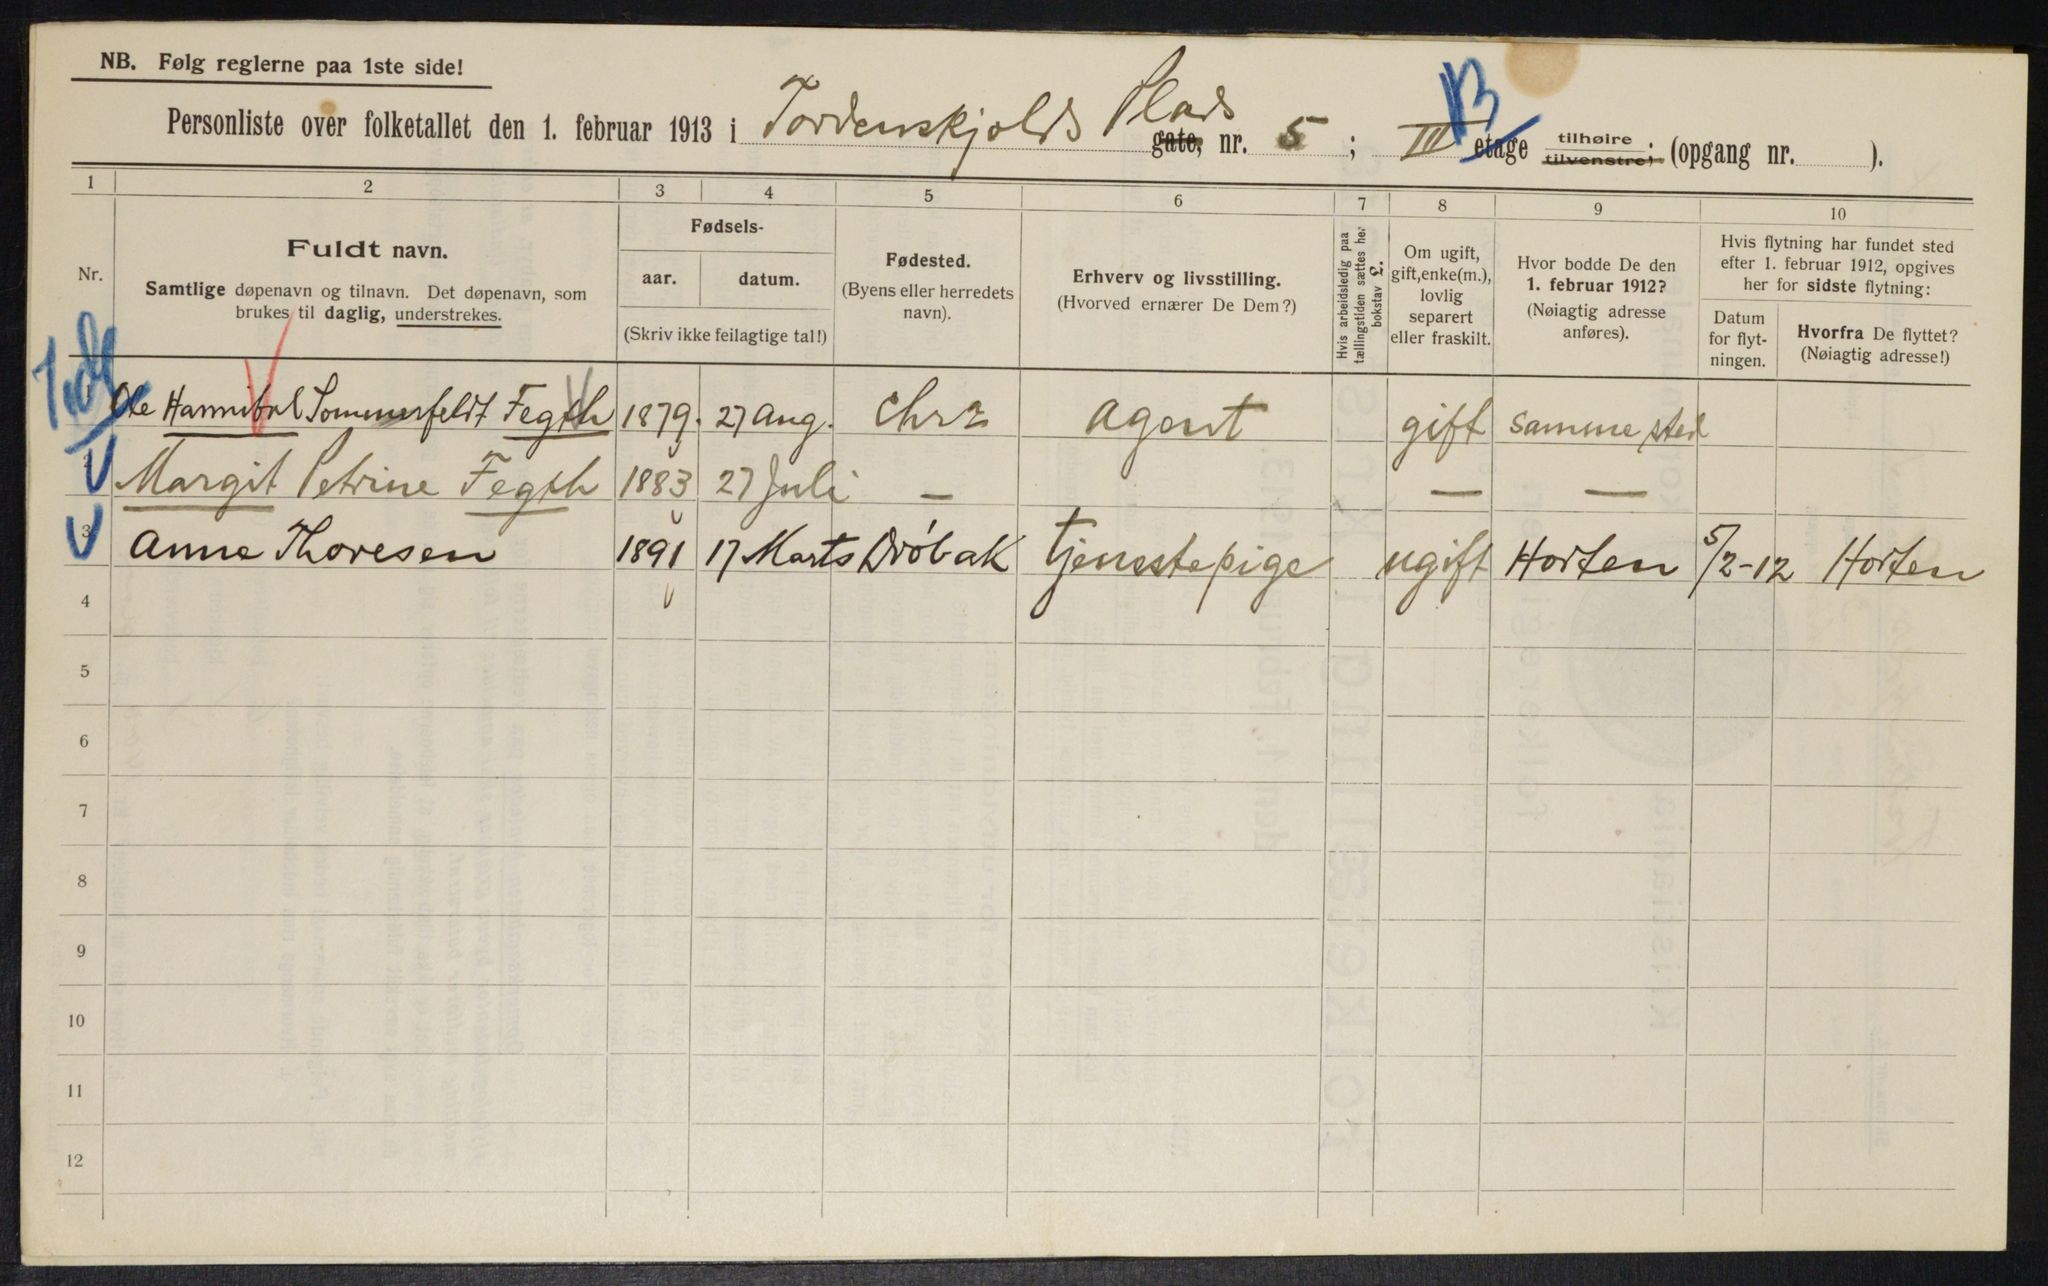 NB. Følg reglerne paa 1ste side!
Personliste over folketallet den 1. februar 1913 i Tordenskjolds Plads gate, nr. 5 ; III etage tilhøire. tilvenstre) (opgang nr. ).
B
1 2 3 4 5 6 7 8 9 10
Nr.
Fuldt navn.
Samtlige døpenavn og tilnavn. Det døpenavn, som
brukes til daglig, understrekes.
Fødsels-
aar.
datum.
(Skriv ikke feilagtige tal!)
Fødested.
(Byens eller herredets
navn).
Erhverv og livsstilling.
(Hvorved ernærer De Dem?)
Hvis arbeidsledig paa
tællingstiden sættes her
bokstav L.
Om ugift,
gift, enke(m.),
lovlig
separert
eller fraskilt.
Hvor bodde De den
1. februar 1912?
(Nøiagtig adresse
anføres).
Hvis flytning har fundet sted
efter 1. februar 1912, opgives
her for sidste flytning:
Datum
for flyt-
ningen.
Hvorfra De flyttet?
(Nøiagtig adresse!)
1 Ole Hannibal Sommerfeldt Fegth 1879. 27 Aug. Chra Agent gift Samme sted
2 Margit Petrine Fegth 1883 27 Juli — — —
3 Anne Thoresen 1891 17 Marts Dröbak Tjenestepige ugift Horten 5/2-12 Horten
4
5
6
7
8
9
10
11
12